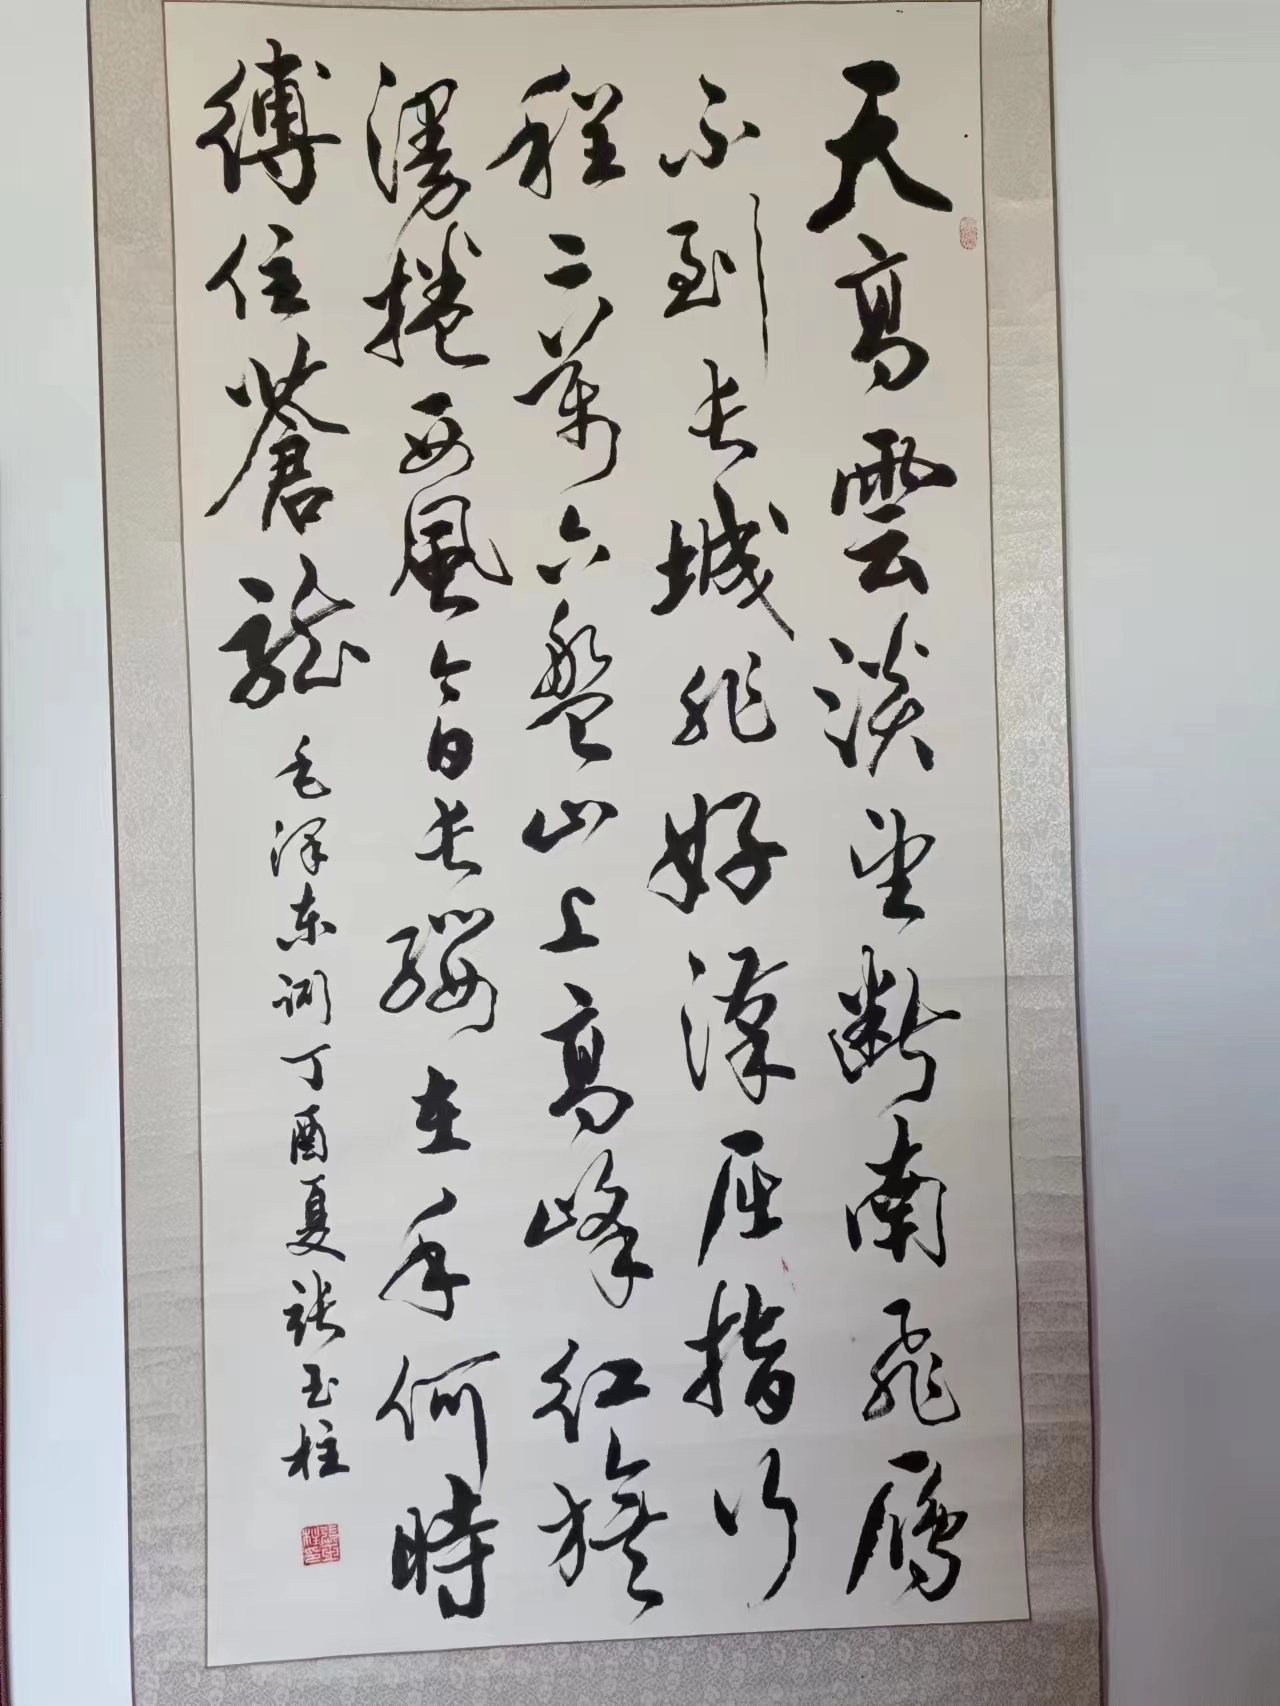 天高雲淡望斷南飛雁
不到长城非好漢屈指行
程二萬六盤山上高峰紅旗
漫捲西風今日长纓在手何時
縛住蒼龍
毛泽东詞丁酉夏張玉柱